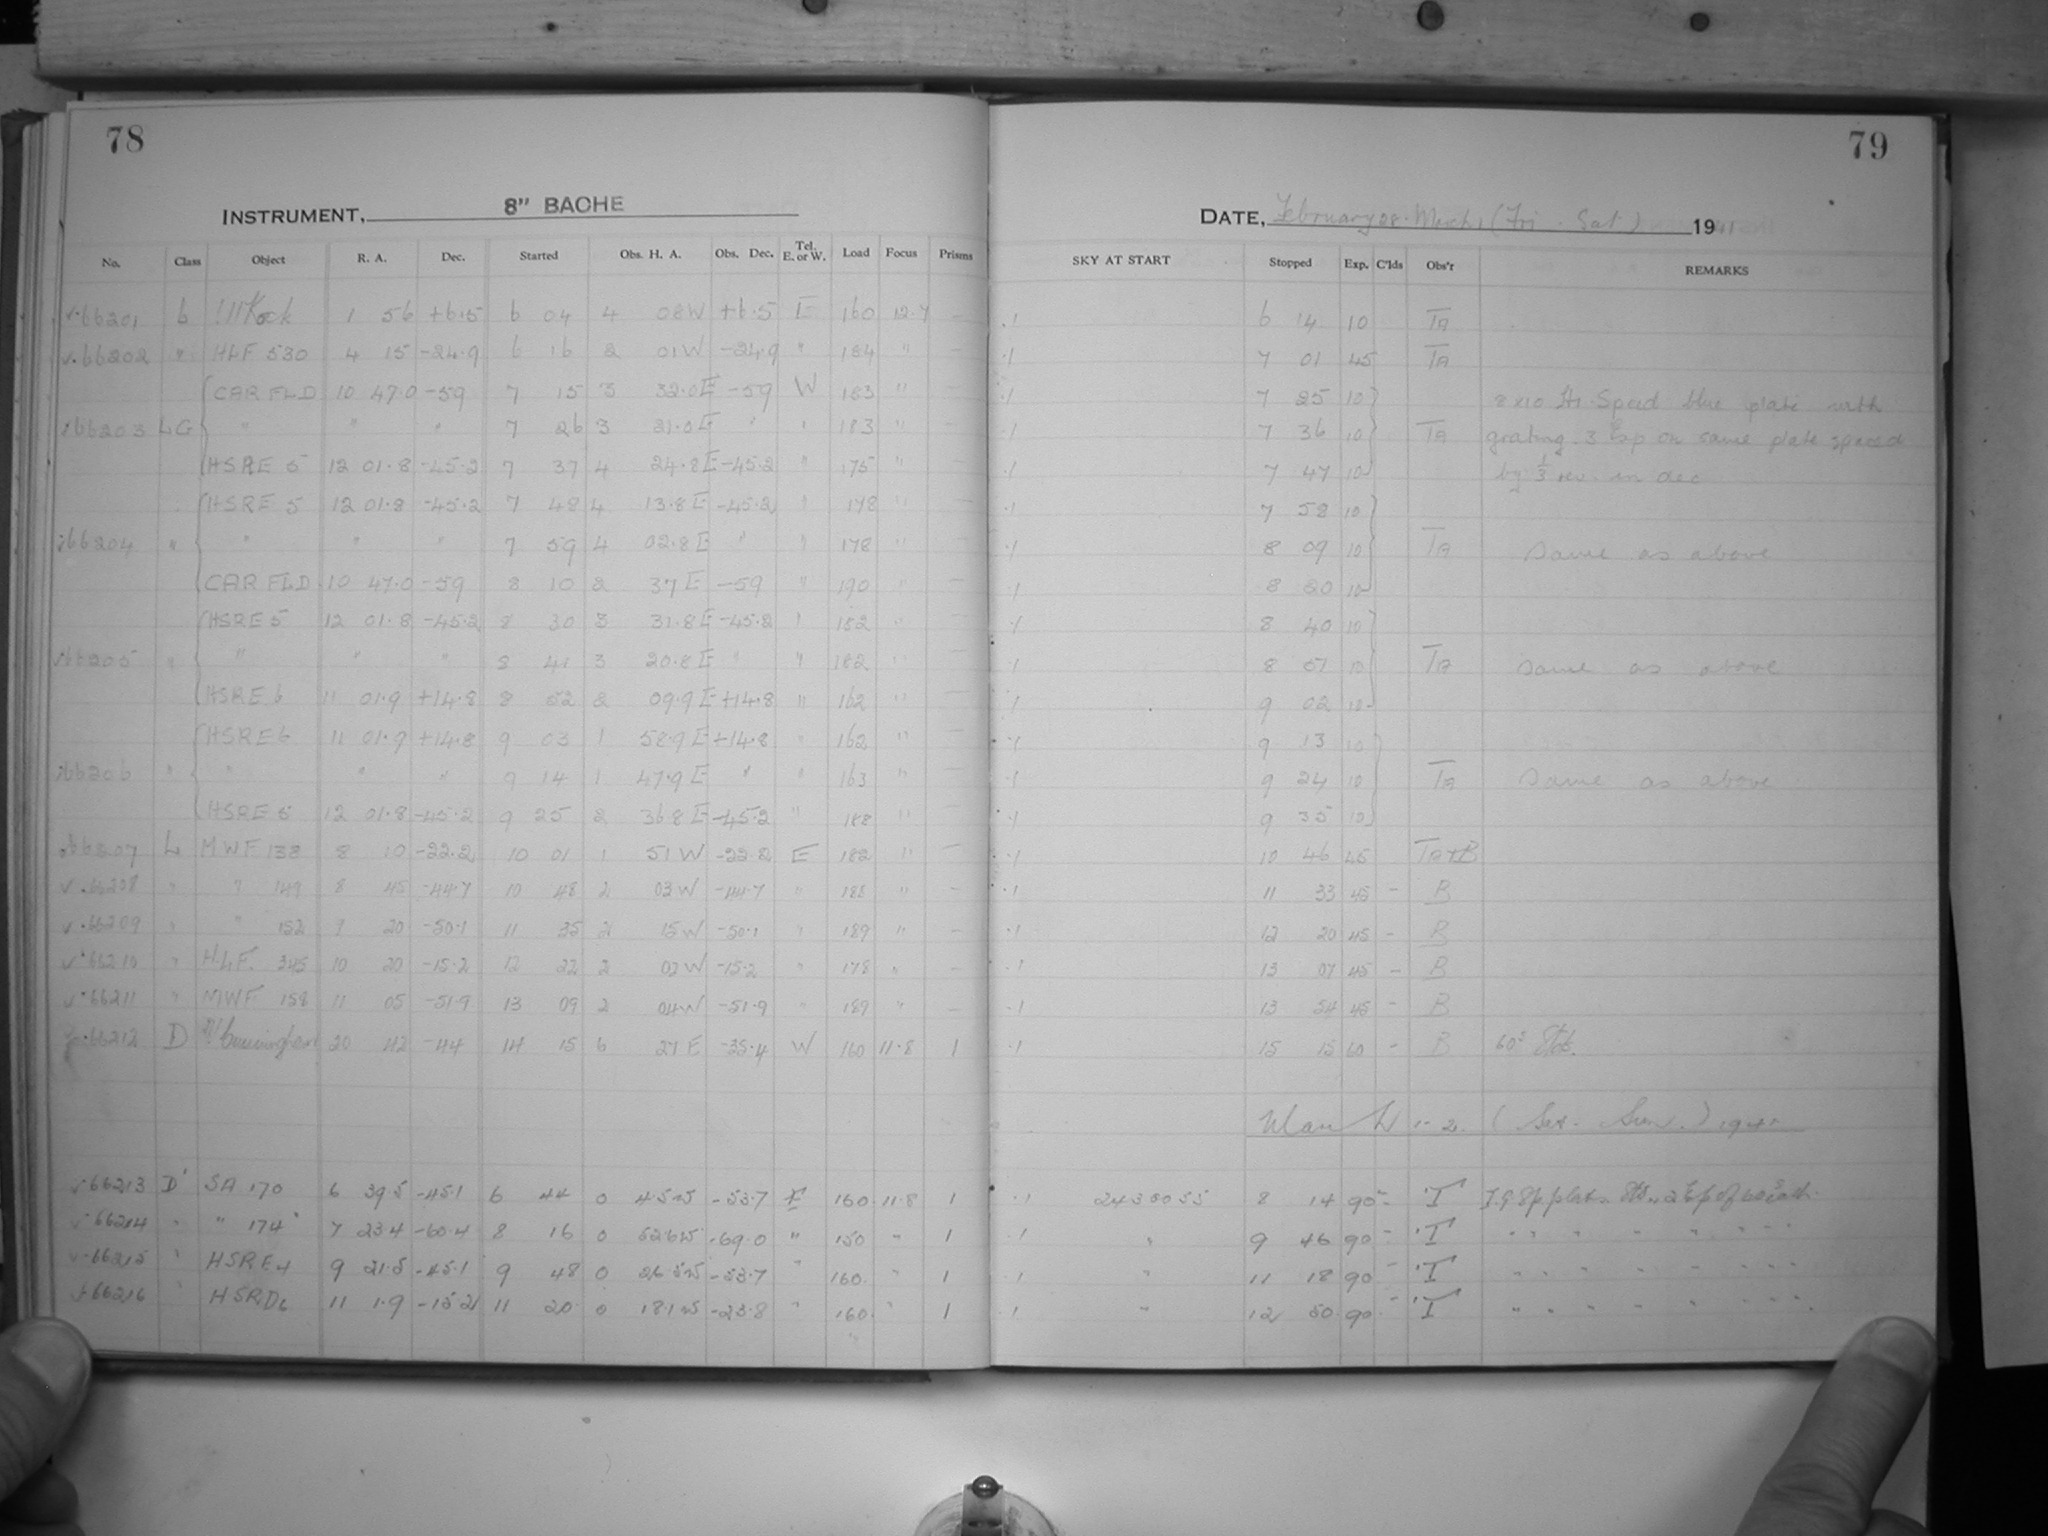 78
79
INSTRUMENT, 8" BACHE
DATE, February 28 - March 1 (Fri - Sat) 1941
No. Class Object R. A. Dec. Started Obs. H. A. Obs. Dec. Tel. E. or W. Load Focus Prisms SKY AT START Stopped Exp. C'lds Obs'r REMARKS
66201 b 1 56 +6.5 6 04 4 08 W +6.5 E 160 12.7 - .1 6 14 10 TA
66202 " HLF 530 4 15 -24.9 6 16 2 01 W -24.9 " 184 " - .1 7 01 45 TA
CAR FLD 10 47.0 -59 7 15 3 32.0 E -59 W 183 " - .1 7 25 10 8x10 Hi. Speed blue plate with
66203 LG " " " 7 26 3 21.0 E " " 183 " - .1 7 36 10 TA grating. 3 Exp on same plate spaced
HSRE 5 12 01.8 -45.2 7 37 4 24.8 E -45.2 " 175 " - .1 7 47 10 by 1/3 rev. in dec
HSRE 5 12 01.8 -45.2 7 48 4 13.8 E -45.2 " 178 " - .1 7 58 10
66204 " " " " 7 59 4 02.8 E " " 178 " .1 8 09 10 TA same as above
CAR FLD 10 47.0 -59 8 10 2 37 E -59 " 190 " - .1 8 20 10
HSRE 5 12 01.8 -45.2 8 30 3 31.8 E -45.2 " 182 " .1 8 40 10
66205 " " " " 8 41 3 20.8 E " " 182 " - .1 8 10 TA same as above
HSRE 6 11 01.9 +14.8 8 52 2 09.9 E +14.8 " 162 " - .1 9 02 10
HSRE 6 11 01.9 +14.8 9 03 1 58.9 E +14.8 " 162 " - .1 9 13 10
66206 " " " " 9 14 1 47.9 E " " 163 " - .1 9 24 10 TA same as above
HSRE 5 12 01.8 -45.2 9 25 2 36.8 E -45.2 " 188 " .1 9 35 10
66207 L MWF 138 8 10 -22.2 10 01 1 51 W -22.2 E 182 " - .1 10 46 45 TA+B
66208 " " 149 8 45 -44.7 10 48 2 03 W -44.7 " 188 " - .1 11 33 45 - B
66209 " " 152 9 20 -50.1 11 35 2 15 W -50.1 " 189 " - .1 12 20 45 - B
66210 " HLF. 345 10 20 -15.2 12 22 2 02 W -15.2 " 178 " - .1 13 07 45 - B
66211 " MWF 158 11 05 -51.9 13 09 2 04 W -51.9 " 189 " - .1 13 54 45 - B
66212 D Cunningham 20 42 -44 14 15 6 27 E -35.4 W 160 11.8 1 .1 15 15 60 - B 60s
March 1-2. (Sat. - Sun.) 1941
66213 D SA 170 6 39.5 -45.1 6 44 0 -53.7 E 160 11.8 1 .1 8 14 90 - T
66214 " " 174 7 23.4 -60.4 8 16 0 -69.0 " 150 " 1 .1 " 9 46 90 - T
66215 " HSRE 4 9 21.5 -45.1 9 48 0 -53.7 " 160 " 1 .1 " 11 18 90 - T
66216 HSRD6 11 1.9 -15.2 11 20 0 18.1 W -23.8 " 160 " 1 .1 " 12 50 90 - T